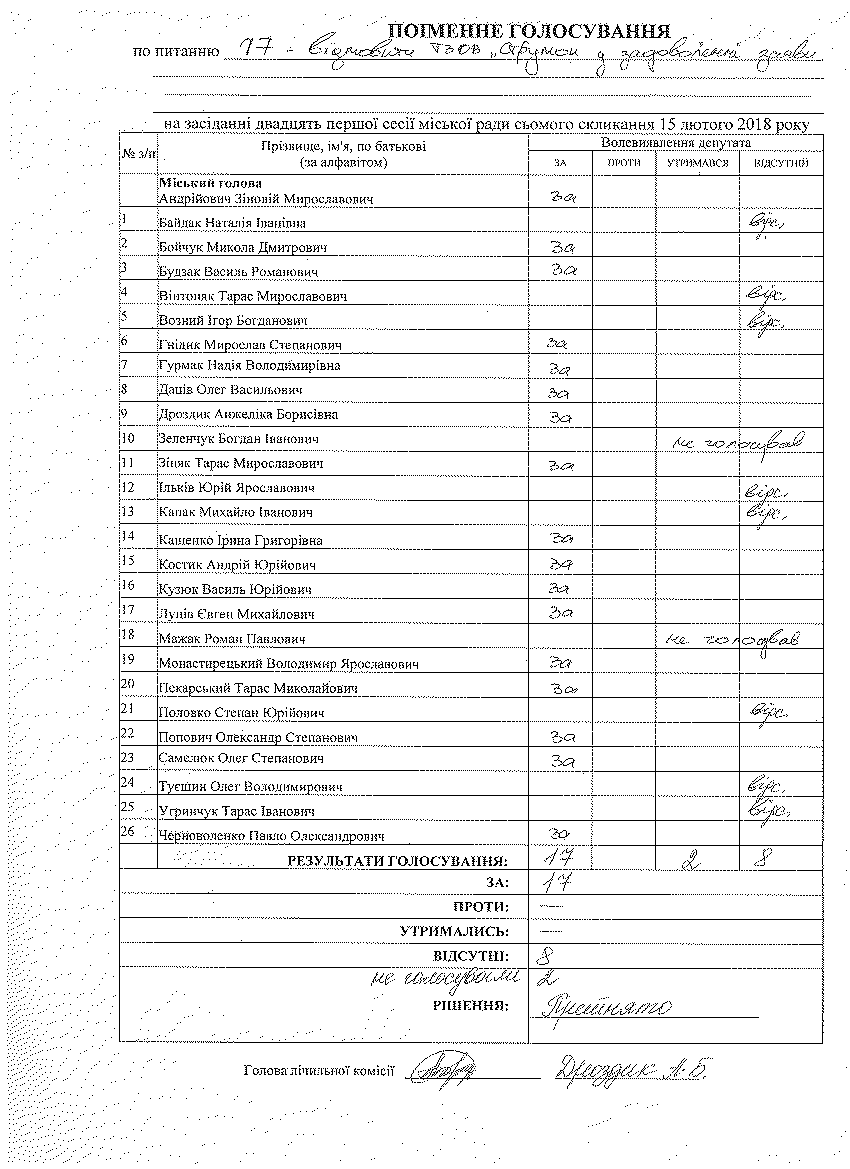 ПОІМЕННЕ ГОЛОСУВАННЯ
по питанню 17 - відмовити ТзОВ „Струмок у задоволенні заяви
на засіданні двадцять першої сесії міської ради сьомого скликання 15 лютого 2018 року
№ з/п Прізвище, ім'я, по батькові (за алфавітом) Волевиявлення депутата
ЗА ПРОТИ УТРИМАВСЯ ВІДСУТНІЙ
Міський голова
Андрійович Зіновій Мирославович за
1 Байдак Наталія Іванівна відс.
2 Бойчук Микола Дмитрович за
3 Будзак Василь Романович за
4 Вінтоняк Тарас Мирославович відс.
5 Возний Ігор Богданович відс.
6 Гнідик Мирослав Степанович за
7 Гурмак Надія Володимирівна за
8 Даців Олег Васильович за
9 Дроздик Анжеліка Борисівна за
10 Зеленчук Богдан Іванович не голосував
11 Зіняк Тарас Мирославович за
12 Ільків Юрій Ярославович відс.
13 Капак Михайло Іванович відс.
14 Кащенко Ірина Григорівна за
15 Костик Андрій Юрійович за
16 Кузюк Василь Юрійович за
17 Луців Євген Михайлович за
18 Мажак Роман Павлович не голосував
19 Монастирецький Володимир Ярославович за
20 Пекарський Тарас Миколайович за
21 Половко Степан Юрійович відс.
22 Попович Олександр Степанович за
23 Самелюк Олег Степанович за
24 Туєшин Олег Володимирович відс.
25 Угринчук Тарас Іванович відс.
26 Черноволенко Павло Олександрович за
РЕЗУЛЬТАТИ ГОЛОСУВАННЯ: 17 2 8
ЗА: 17
ПРОТИ: —
УТРИМАЛИСЬ: —
ВІДСУТНІ: 8
не голосували 2
РІШЕННЯ: Прийнято
Голова лічильної комісії Дроздик А.Б.